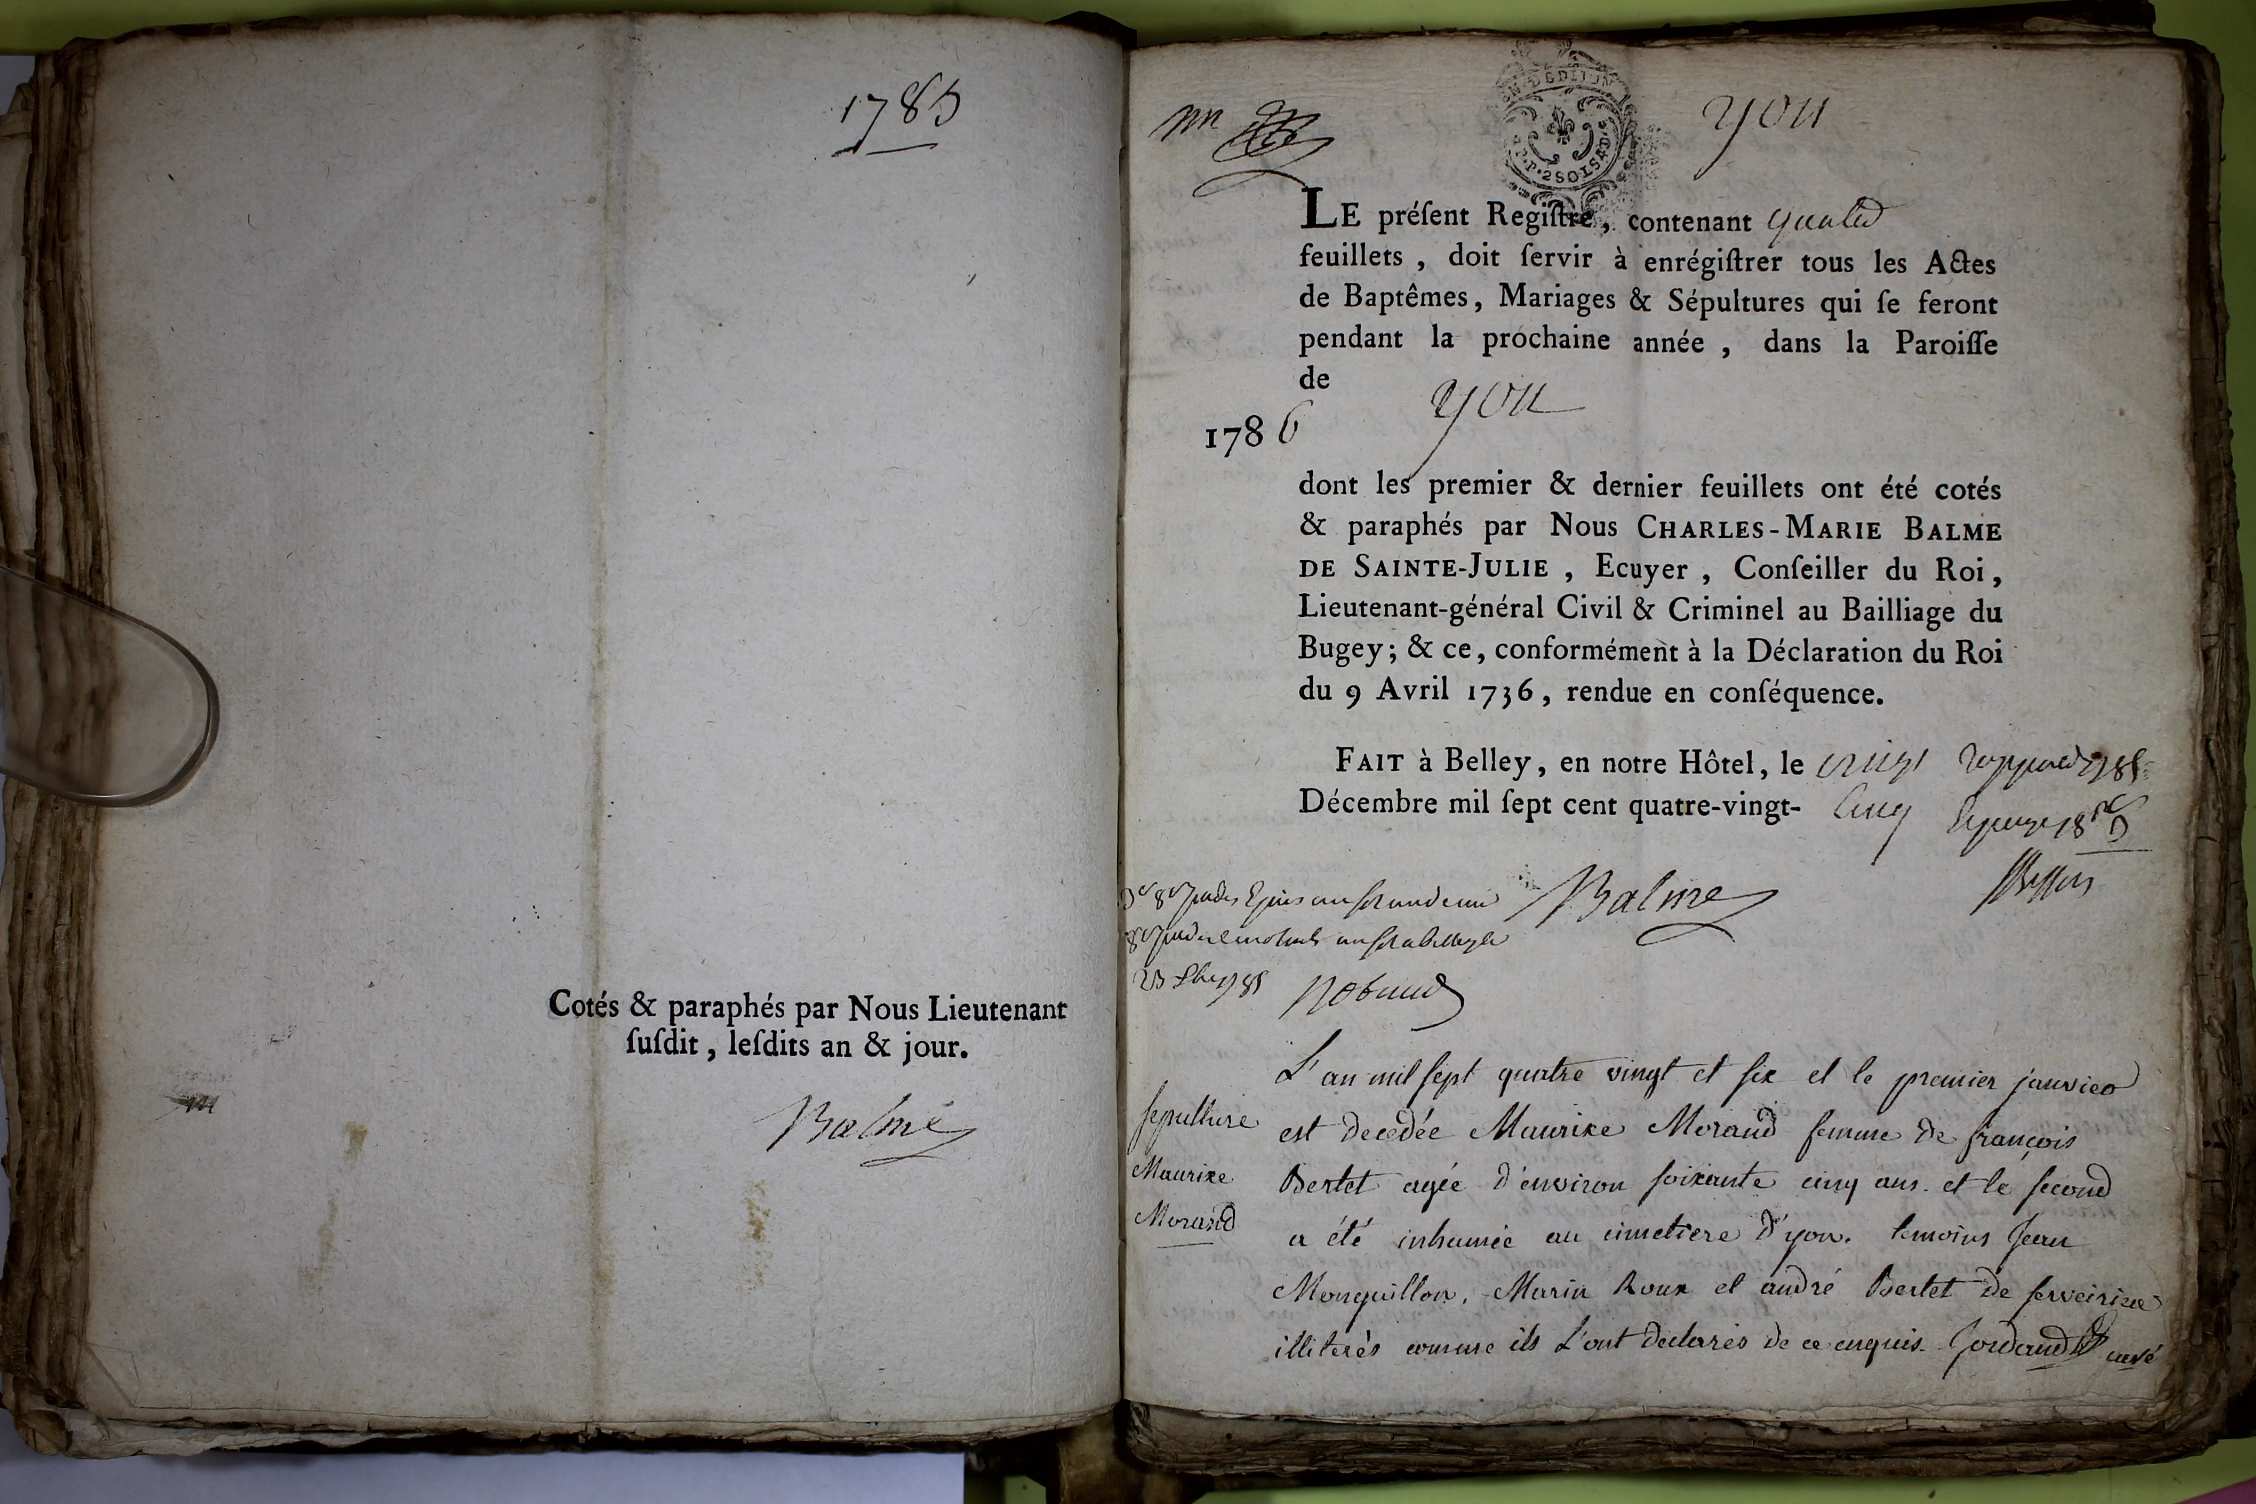 1785
Cotés & paraphés par Nous Lieutenant
ſuſdit, leſdits an & jour.
Balme
yon
LE préſent Regiſtre, contenant quatre
feuillets, doit ſervir à enrégiſtrer tous les Actes
de Baptêmes, Mariages & Sépultures qui ſe feront
pendant la prochaine année, dans la Paroiſſe
de
yon
1786
dont les premier & dernier feuillets ont été cotés
& paraphés par Nous CHARLES-MARIE BALME
DE SAINTE-JULIE, Ecuyer, Conſeiller du Roi,
Lieutenant-général Civil & Criminel au Bailliage du
Bugey; & ce, conformément à la Déclaration du Roi
du 9 Avril 1736, rendue en conſéquence.
FAIT à Belley, en notre Hôtel, le vingt
Décembre mil ſept cent quatre-vingt- cinq
Balme
L'an mil sept quatre vingt et six et le premier janvier
sepulture
est decedée Maurize Morand femme de françois
Maurize
Bertet agée d'environ soixante cinq ans. et le second
Morand
a été inhumée au cimetiere d'yon. temoins Jean
Monguillon, Marin Roux et andré Bertet de
illiterés comme ils L'ont declarés de ce enquis. curé